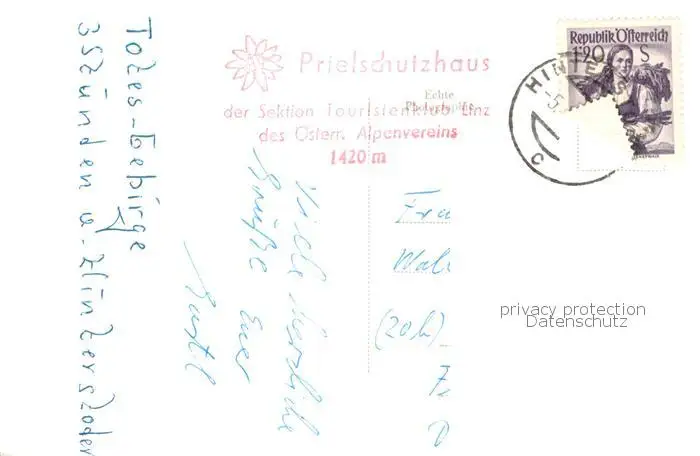 Totes-Gebirge
3 Stunden v. Hinterstoder
Prielschutzhaus
der Sektion Touristenklub Linz
des Österr. Alpenvereins
1420 m
Echte
Photographie
Republik Österreich
1·20 S
HINTERS
C
Viele herzliche
Grüße Euer
Frau
(20b)
privacy protection
Datenschutz